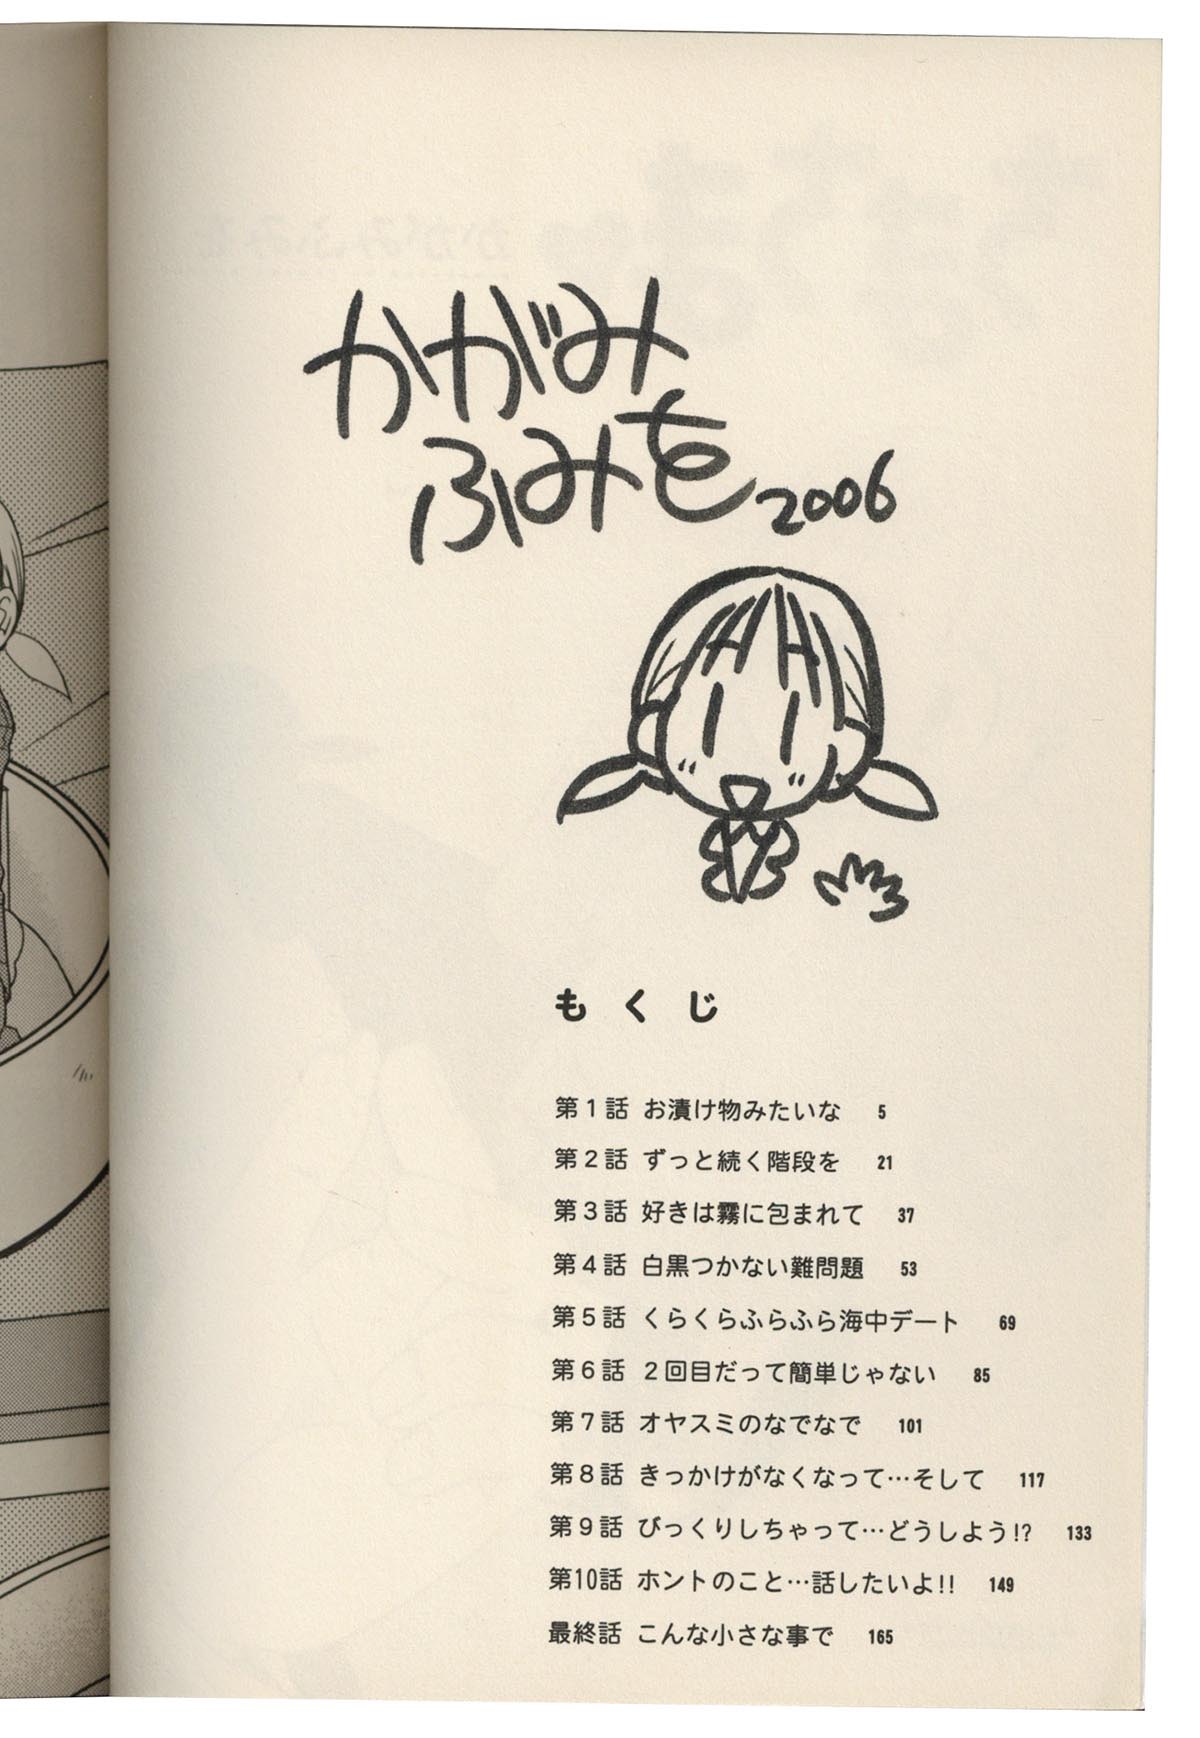 かがみ
ふみを 2006
もくじ
第1話 お漬け物みたいな 5
第2話 ずっと続く階段を 21
第3話 好きは霧に包まれて 37
第4話 白黒つかない難問題 53
第5話 くらくらふらふら海中デート 69
第6話 2回目だって簡単じゃない 85
第7話 オヤスミのなでなで 101
第8話 きっかけがなくなって…そして 117
第9話 びっくりしちゃって…どうしよう!? 133
第10話 ホントのこと…話したいよ!! 149
最終話 こんな小さな事で 165